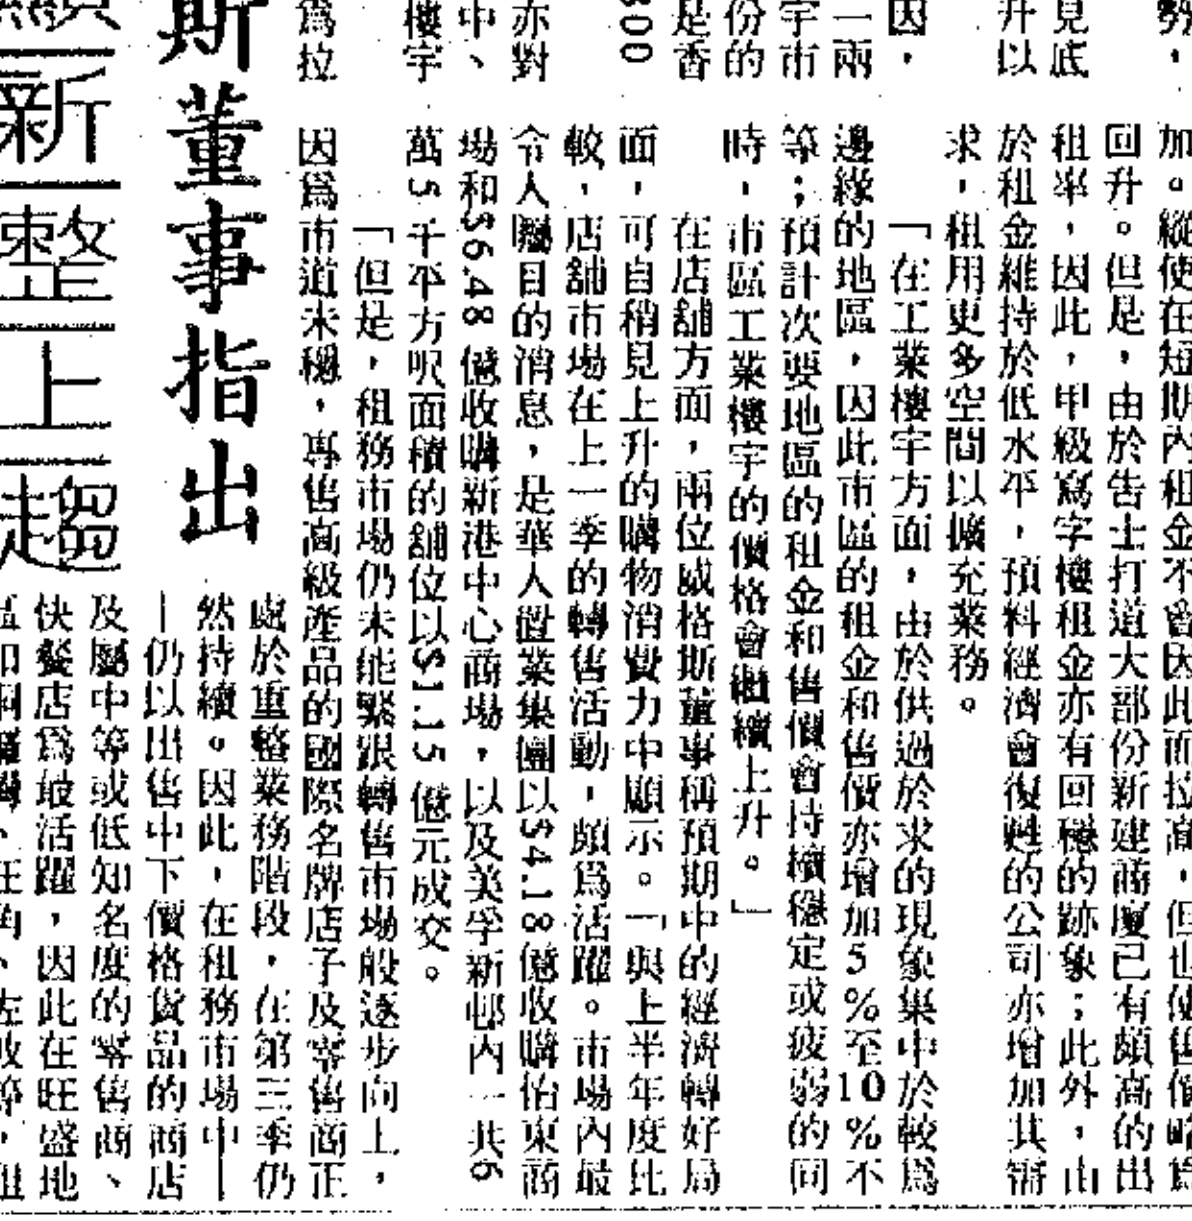 勢，
見底
升以
因，
一兩
宇市
份的
是香
300
亦對
中、
樓宇
為拉
加。縱使在短期內租金不會因此而拉高，但也使售價略為
回升。但是，由於告士打道大部份新建商廈已有頗高的出
租率，因此，甲級寫字樓租金亦有回穩的跡象；此外，由
於租金維持於低水平，預料經濟會復甦的公司亦增加其需
求，租用更多空間以擴充業務。
「在工業樓宇方面，由於供過於求的現象集中於較為
邊緣的地區，因此市區的租金和售價亦增加5％至10％不
等；預計次要地區的租金和售價會持續穩定或疲弱的同
時，市區工業樓宇的價格會繼續上升。」
在店舖方面，兩位威格斯董事稱預期中的經濟轉好局
面，可自稍見上升的購物消費力中顯示。「與上半年度比
較，店舖市場在上一季的轉售活動，頗為活躍。市場內最
令人屬目的消息，是華人置業集團以$4.18億收購怡東商
場和$6.48億收購新港中心商場，以及美孚新邨內一共6
萬5千平方呎面積的舖位以$1.15億元成交。
「但是，租務市場仍未能緊跟轉售市場般逐步向上，
因為市道未穩，專售高級產品的國際名牌店子及零售商正
處於重整業務階段，在第三季仍
然持續。因此，在租務市場中—
—仍以出售中下價格貨品的商店
及屬中等或低知名度的零售商、
快餐店為最活躍，因此在旺盛地
區如銅鑼灣、旺角、左敦等，租
斯董事指出
顯新整上趨